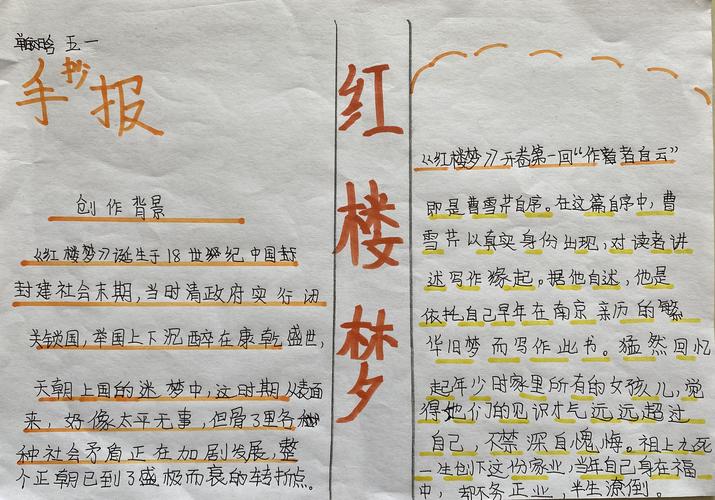 五一
手抄报
创作背景
《红楼梦》诞生于18世纪中国封
封建社会末期,当时清政府实行闭
关锁国,举国上下沉醉在康乾盛世,
天朝上国的迷梦中,这时期从表面
来,好像太平无事,但骨子里各种
种社会矛盾正在加剧发展,整
个正朝已到了盛极而衰的转折点。
红楼梦
《红楼梦》开卷第一回“作者者自云”
即是曹雪芹自序。在这篇自序中,曹
雪芹以真实身份出现,对读者讲
述写作缘起。据他自述,他是
依托自己早年在南京亲历的繁
华旧梦而写作此书。猛然回忆
起年少时家里所有的女孩儿,觉
得她们的见识才气远远超过
自己,不禁深自愧悔。祖上九死
一生创下这份家业,当年自己身在福
中,却不务正业,半生潦倒。